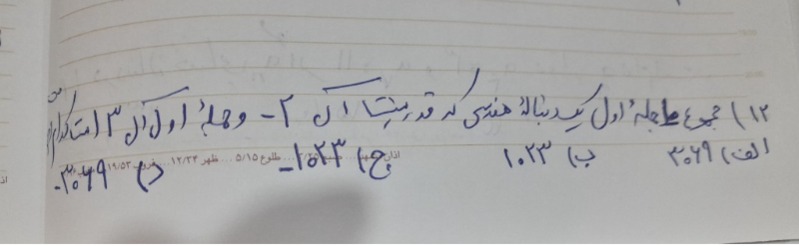 ۱۲) مجموع جملهٔ اول یک دنبالهٔ هندسی که قدر نسبت آن ۲- و جملهٔ اول آن ۳ است کدام
الف) ۳۰۶۹ ب) ۱۰۲۳ ج) ۱۰۲۳- د) ۳۰۶۹-
اذان طلوع ۵/۱۵ ظهر ۱۲/۲۴ ۱۹/۵۳